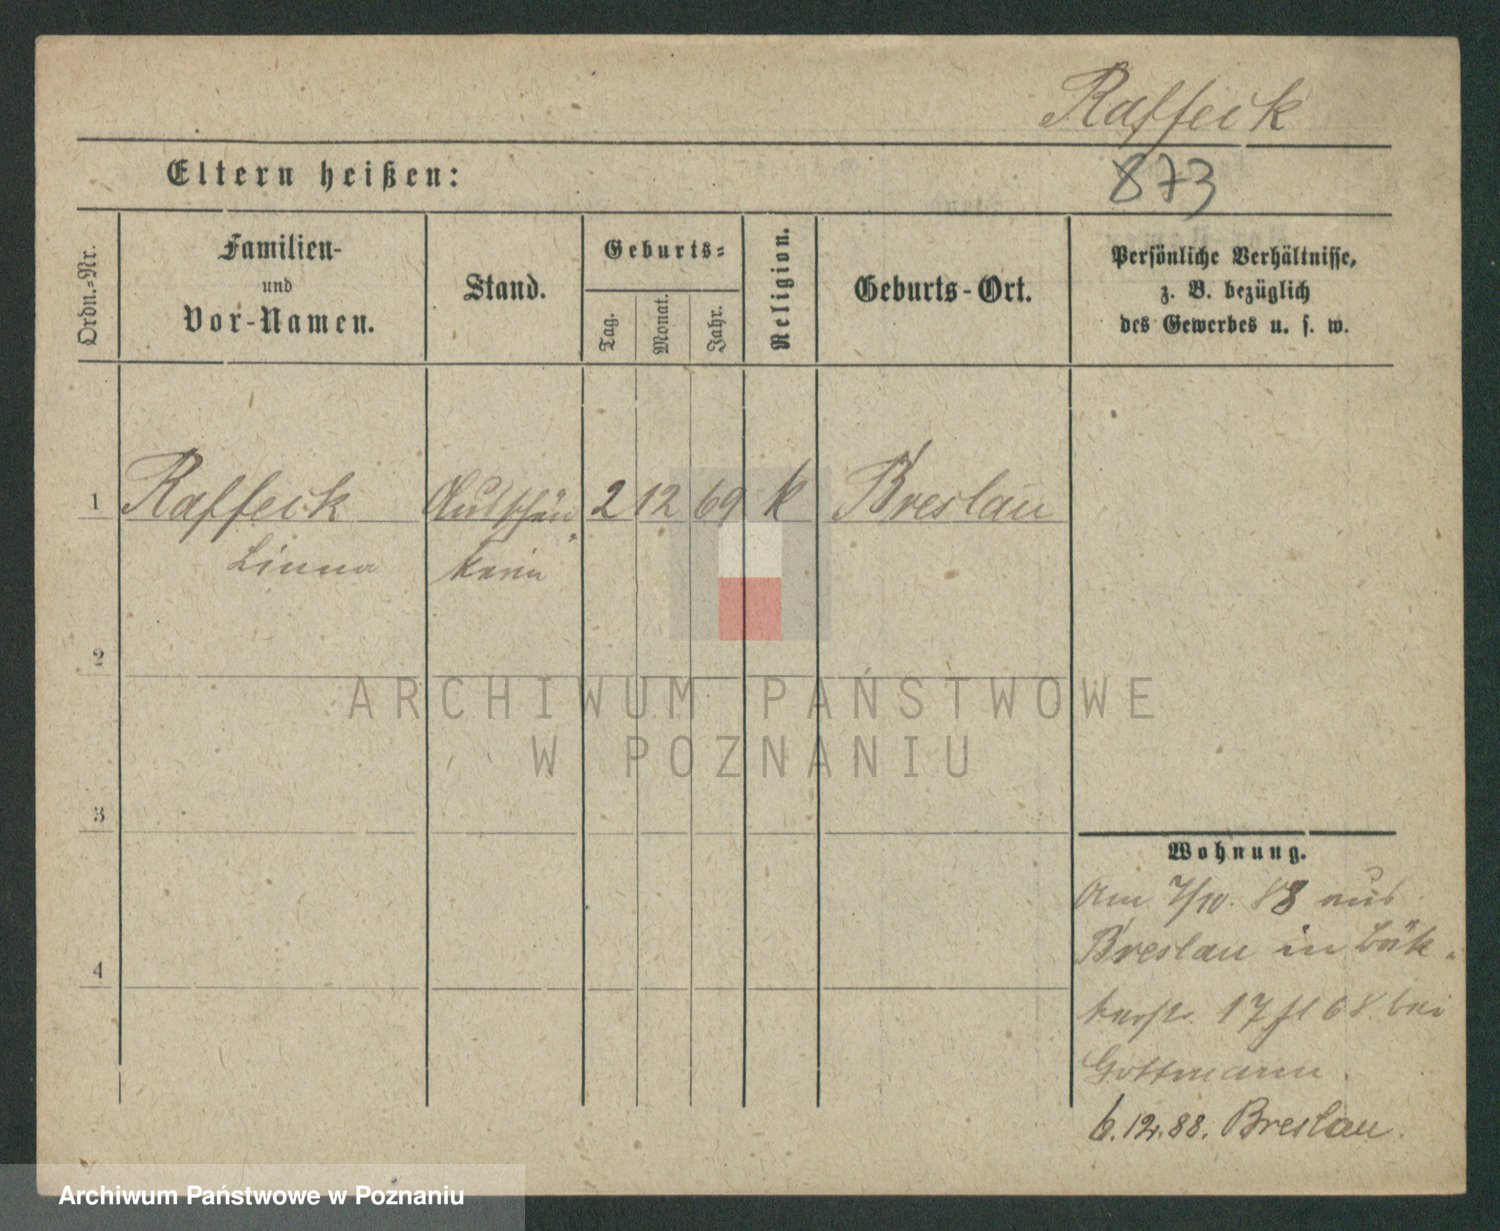 Raffeck
Eltern heißen:
873
Ordn.-Nr.
Familien-
und
Vor-Namen.
Stand.
Geburts-
Tag.
Monat.
Jahr.
Religion.
Geburts-Ort.
Persönliche Verhältnisse,
z. B. bezüglich
des Gewerbes u. s. w.
1 Raffeck 2 12 69 k Breslau
kerin
2
ARCHIWUM PAŃSTWOWE
W POZNANIU
3
Wohnung.
Am 7/10. 88 aus
Breslau in
4
17 68 bei
Gottmann
6.12.88. Breslau.
Archiwum Państwowe w Poznaniu